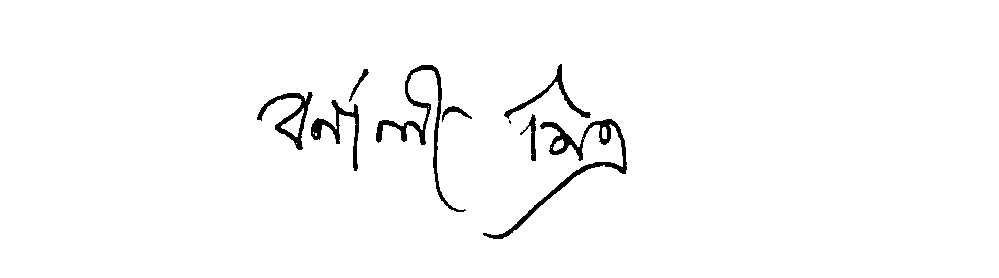 বর্নালী মিত্র